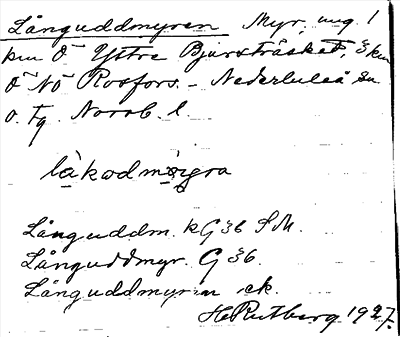 Långuddmyren Myr, ung. 1
km Ö Yttre Bjursträsket, 3 km
Ö NÖ Rosfors. - Nederluleå sn
o. Tg. Norrb. l.
låkodmyra
Långuddm. kG 36 SM.
Långuddmyr. G 36.
Långuddmyren ek.
H Rutberg 1927.